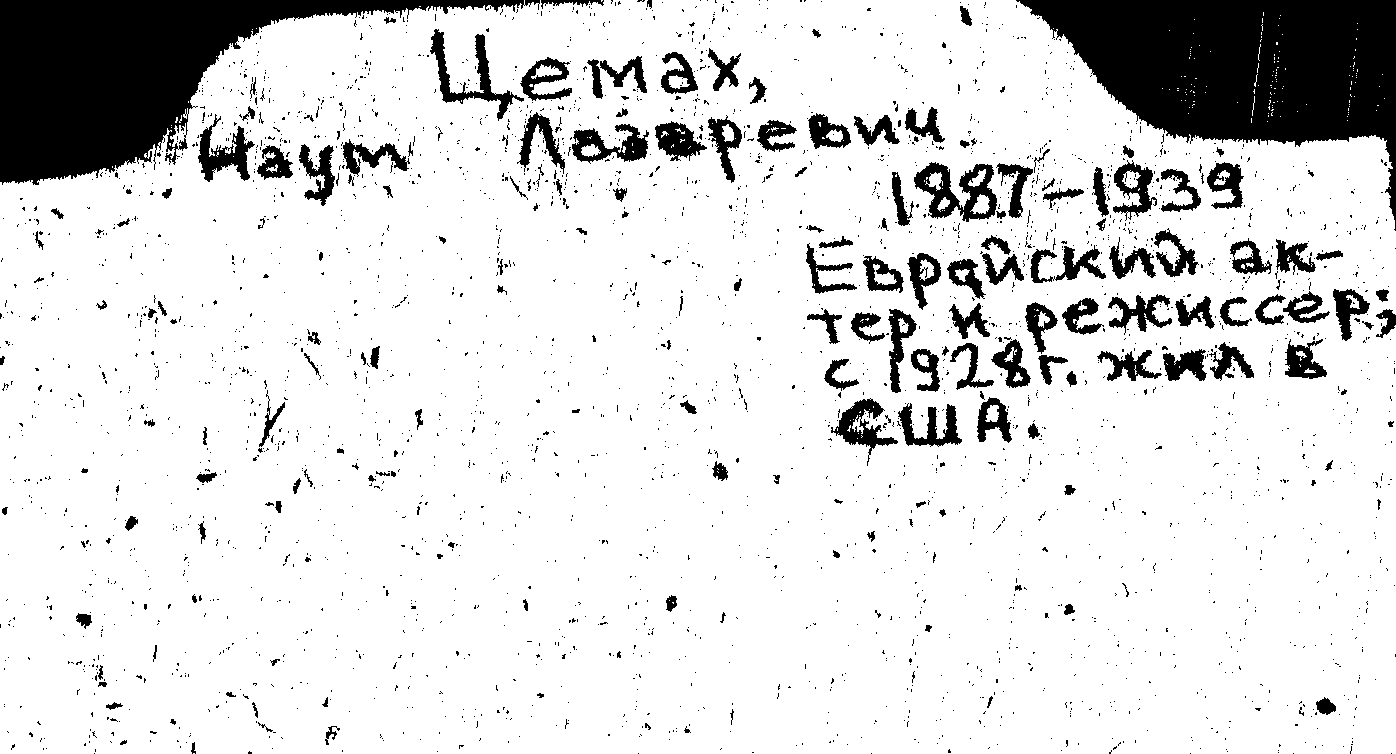 Цемах,
Наум Лазаревич
1887-1939
Еврейский ак-
тер и режиссер;
с 1928г. жил в
США.